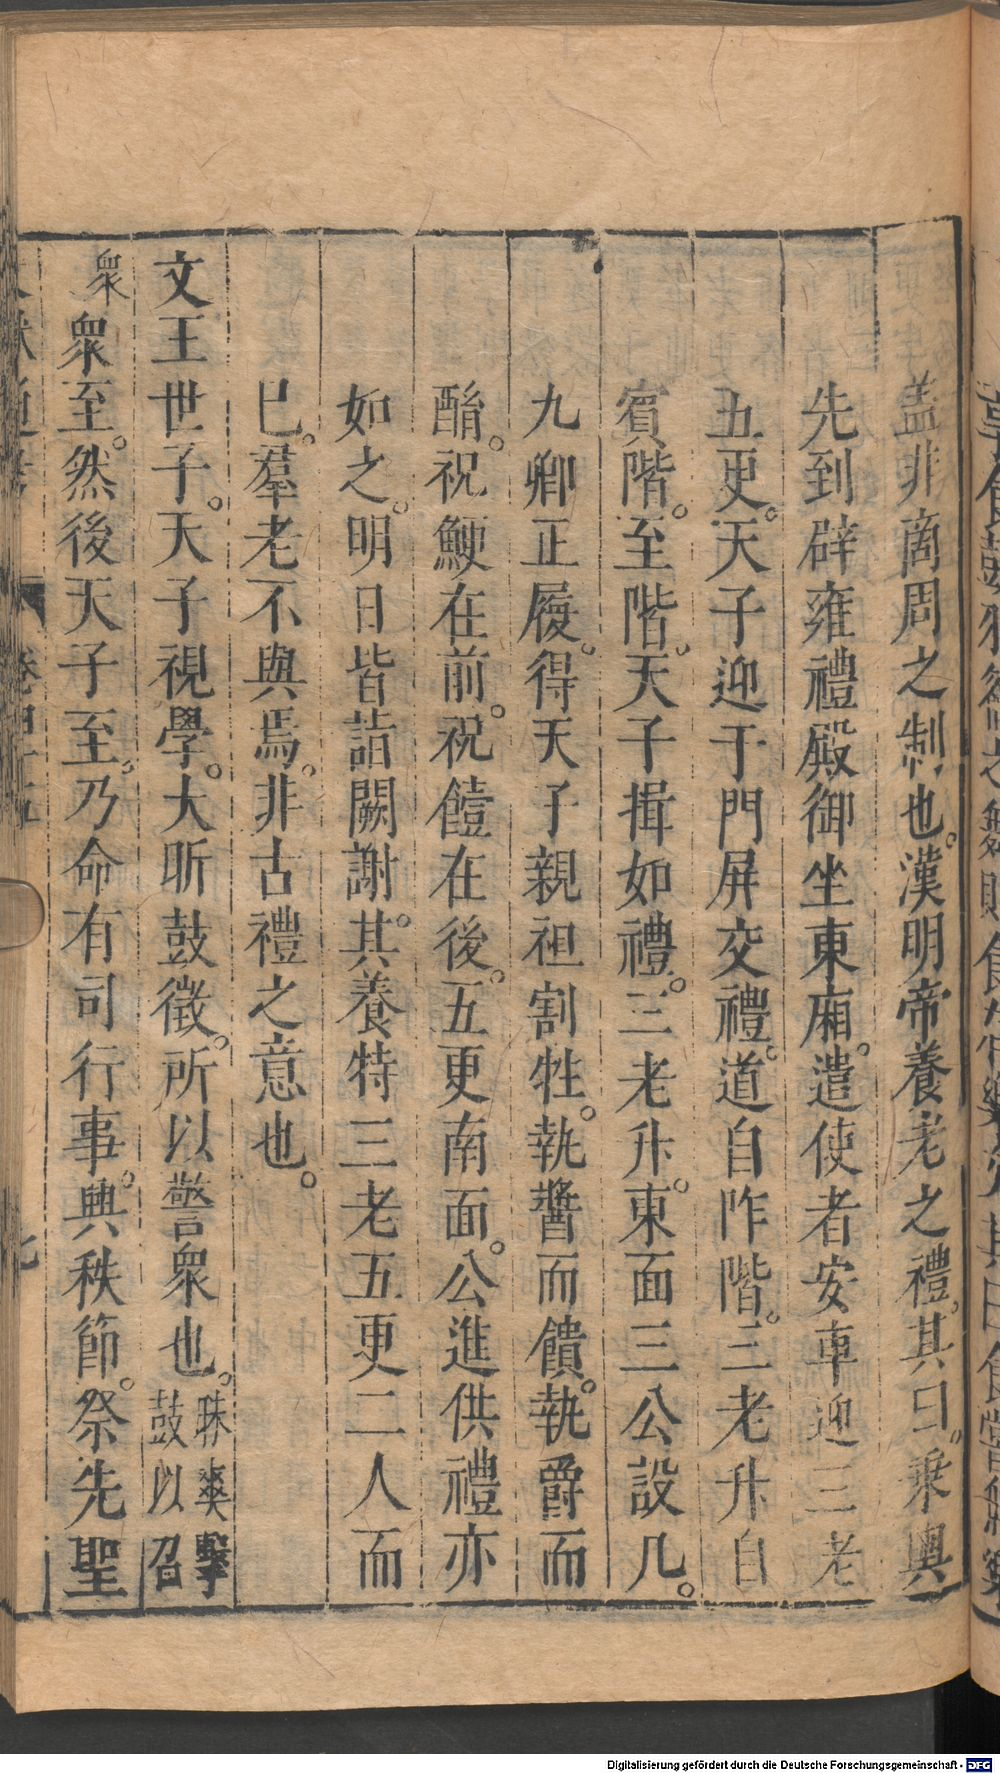 盖非商周之制也。漢明帝養老之禮。其日。乘輿
先到辟雍禮殿御坐東廂。遣使者安車迎三老
五更。天子迎于門屏交禮。道自阼階。三老升自
賓階。至階。天子揖如禮。三老升。東面三公設几。
九卿正履。得天子親袒割牲。執醬而饋。執爵而
酳。祝鯁在前。祝饐在後。五更南面。公進供禮亦
如之。明日皆詣闕謝。其養特三老五更二人而
已。羣老不與焉。非古禮之意也。
文王世子。天子視學。大昕鼓徵。所以警衆也。昧爽擊鼓以召
衆衆至。然後天子至。乃命有司行事。興秩節。祭先聖
Digitalisierung gefördert durch die Deutsche Forschungsgemeinschaft - DFG